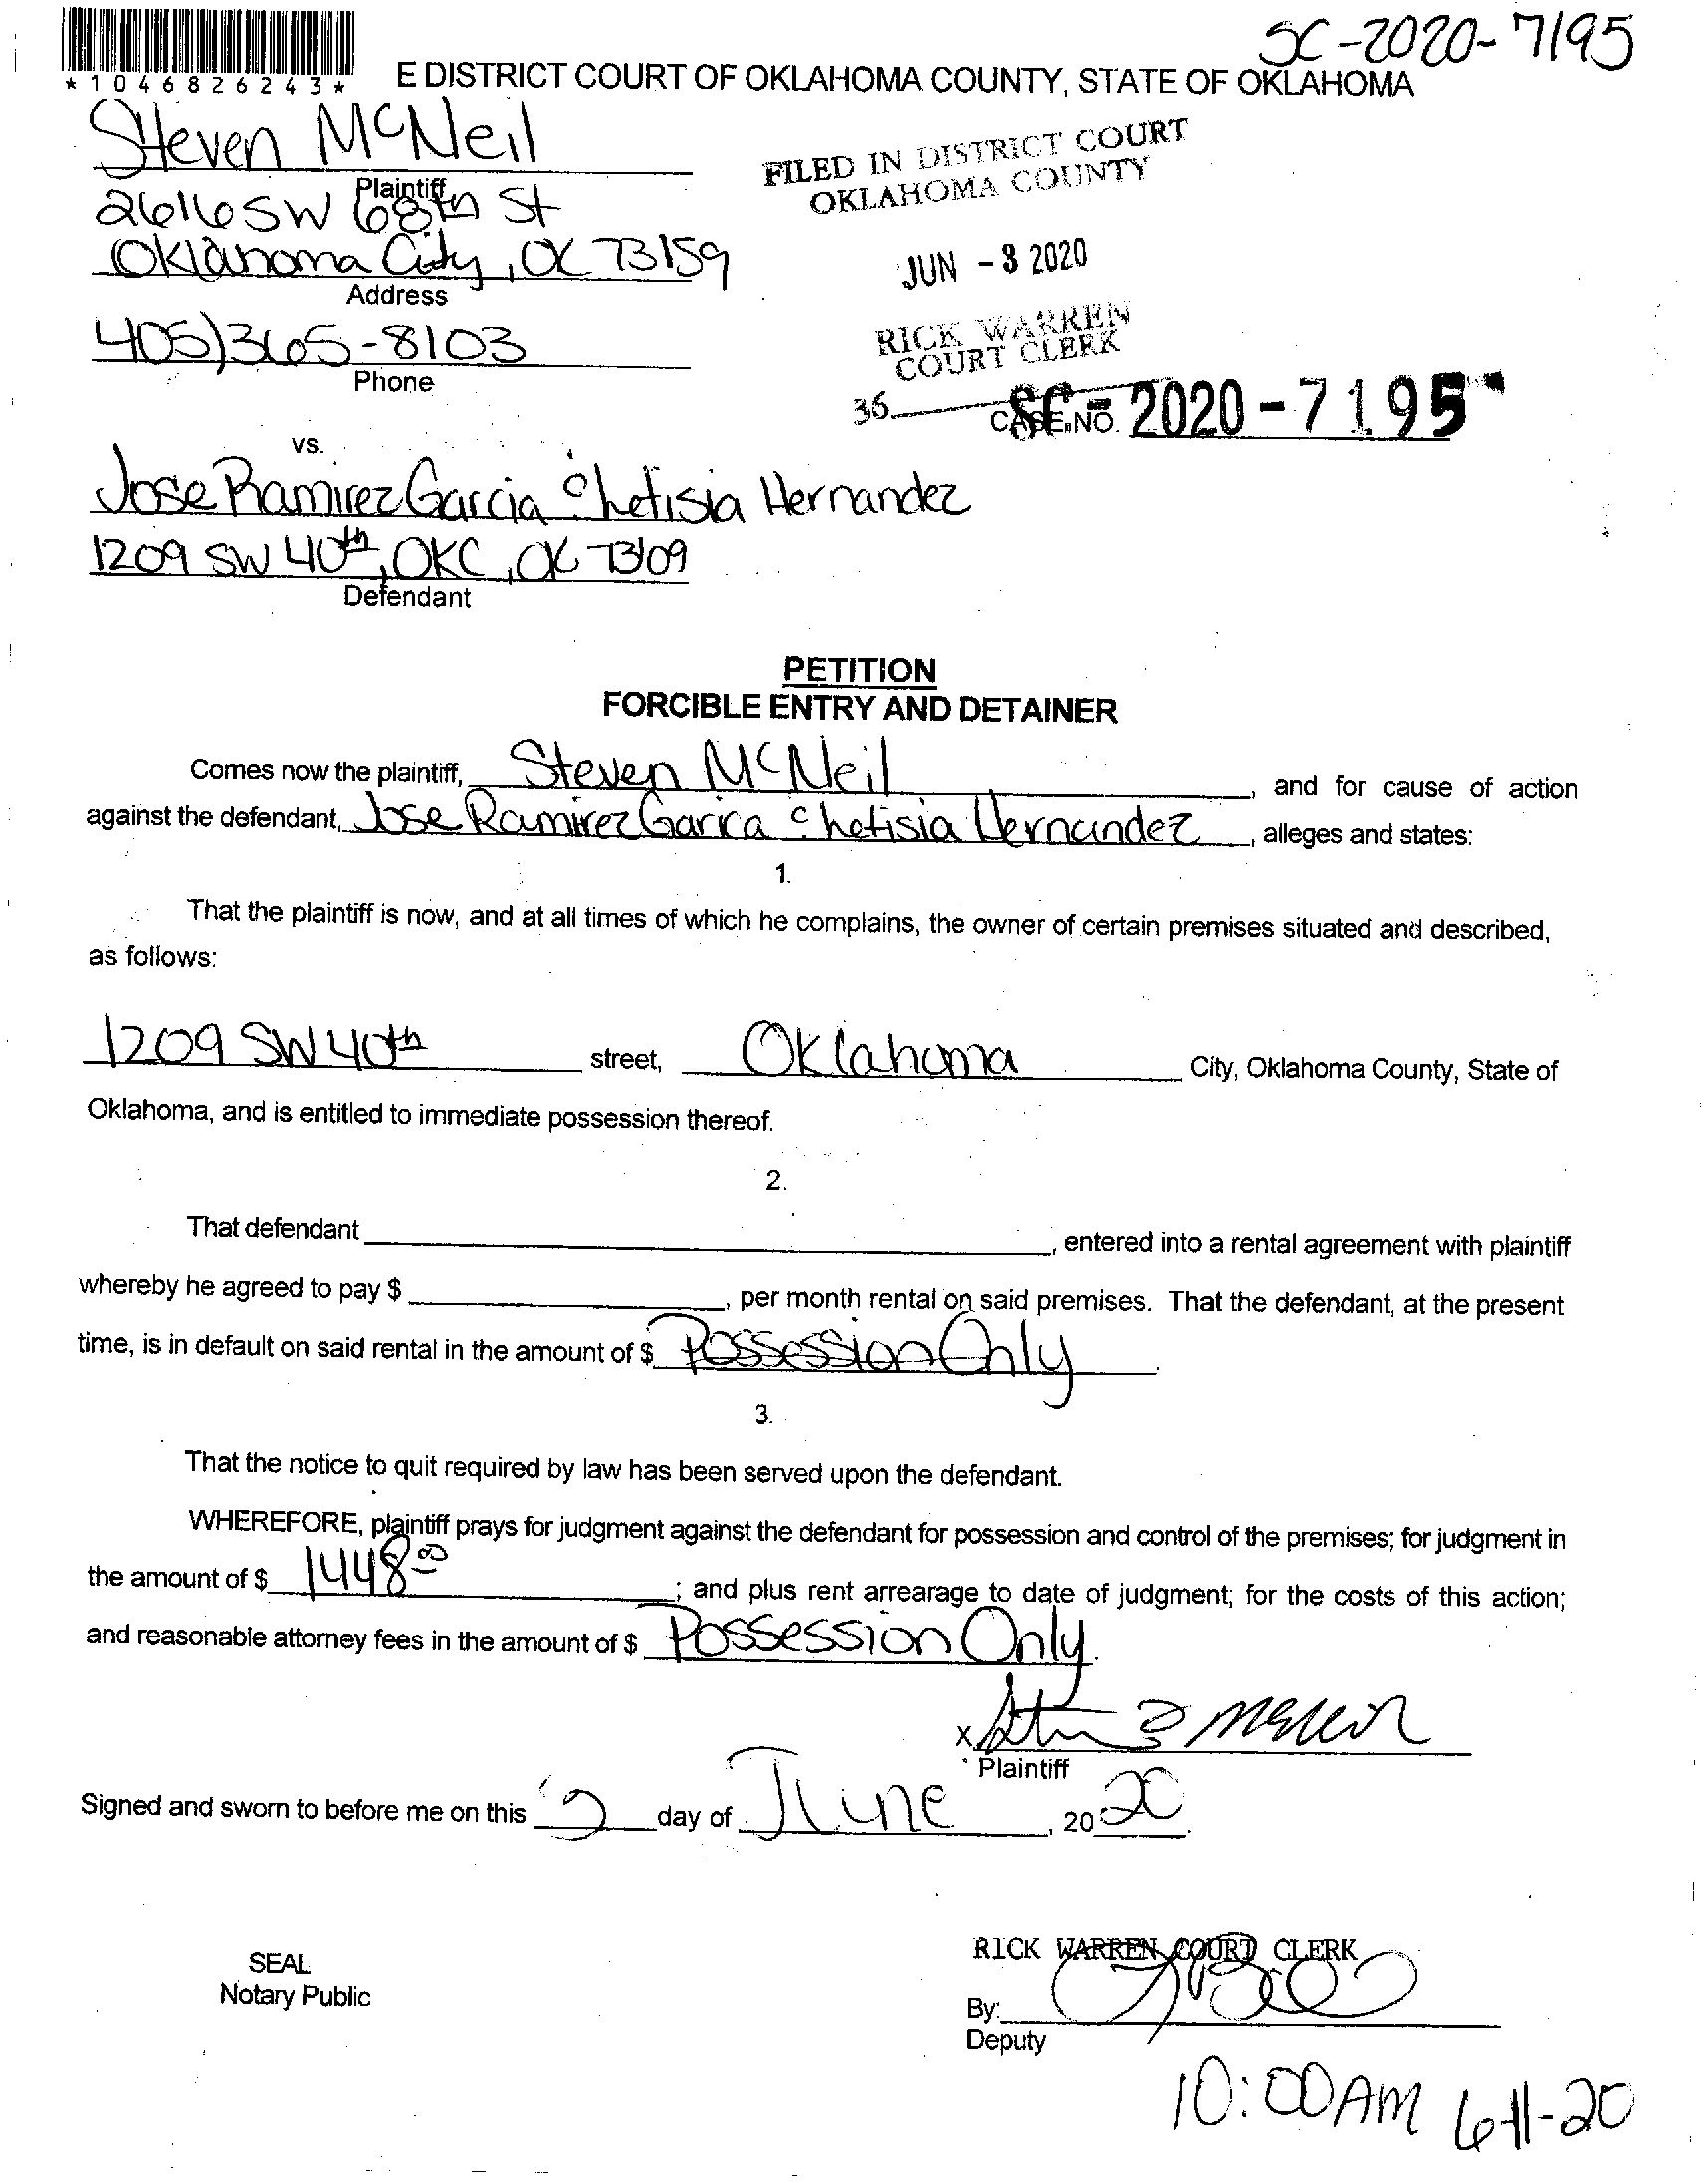 SC-2020-7195
*1046826243*
E DISTRICT COURT OF OKLAHOMA COUNTY, STATE OF OKLAHOMA
Steven McNeil
Plaintiff
2616 SW 68th St
Oklahoma City, OK 73159
Address
405)365-8103
Phone
FILED IN DISTRICT COURT
OKLAHOMA COUNTY
JUN - 3 2020
RICK WARREN
COURT CLERK
36
CASE NO. SC-2020-7195
vs.
Jose Ramirez Garcia & Letisia Hernandez
1209 SW 40th, OKC, OK 73109
Defendant
PETITION
FORCIBLE ENTRY AND DETAINER
Comes now the plaintiff, Steven McNeil, and for cause of action
against the defendant, Jose Ramirez Garica & Letisia Hernandez, alleges and states:
1.
That the plaintiff is now, and at all times of which he complains, the owner of certain premises situated and described,
as follows:
1209 SW 40th street, Oklahoma City, Oklahoma County, State of
Oklahoma, and is entitled to immediate possession thereof.
2.
That defendant , entered into a rental agreement with plaintiff
whereby he agreed to pay $ , per month rental on said premises. That the defendant, at the present
time, is in default on said rental in the amount of $ Possession Only.
3.
That the notice to quit required by law has been served upon the defendant.
WHEREFORE, plaintiff prays for judgment against the defendant for possession and control of the premises; for judgment in
the amount of $ 1448.00; and plus rent arrearage to date of judgment; for the costs of this action;
and reasonable attorney fees in the amount of $ Possession Only.
X
Plaintiff
Signed and sworn to before me on this day of June, 2020.
SEAL
Notary Public
RICK WARREN COURT CLERK
By:
Deputy
10:00AM 6-11-20